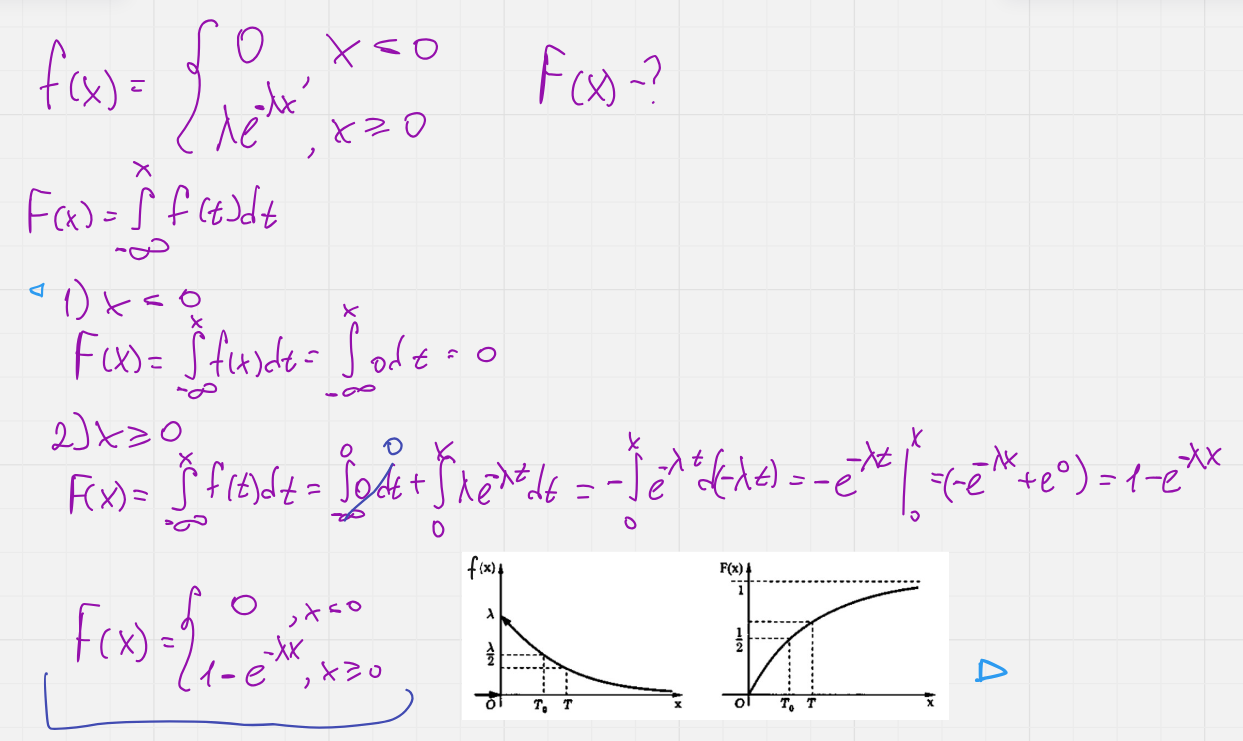 f(x) = { 0, x < 0
λe^{-λx}, x ≥ 0
F(x) - ?
F(x) = ∫_{-∞}^{x} f(t)dt
1) x < 0
F(x) = ∫_{-∞}^{x} f(x)dt = ∫_{-∞}^{x} 0dt = 0
2) x ≥ 0
F(x) = ∫_{-∞}^{x} f(t)dt = ∫_{-∞}^{0} 0dt 0 + ∫_{0}^{x} λe^{-λt}dt = -∫_{0}^{x} e^{-λt}d(-λt) = -e^{-λt} |_{0}^{x} = (-e^{-λx} + e^0) = 1 - e^{-λx}
F(x) = { 0, x < 0
1 - e^{-λx}, x ≥ 0
f(x)
λ
λ/2
O T₀ T x
F(x)
1
1/2
O T₀ T x